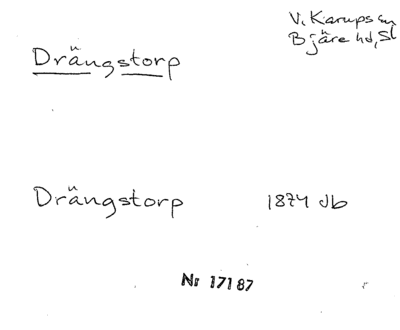 V. Karups sn
Bjäre hd, Sk
Drängstorp
Drängstorp 1874 Jb
Nr 17187